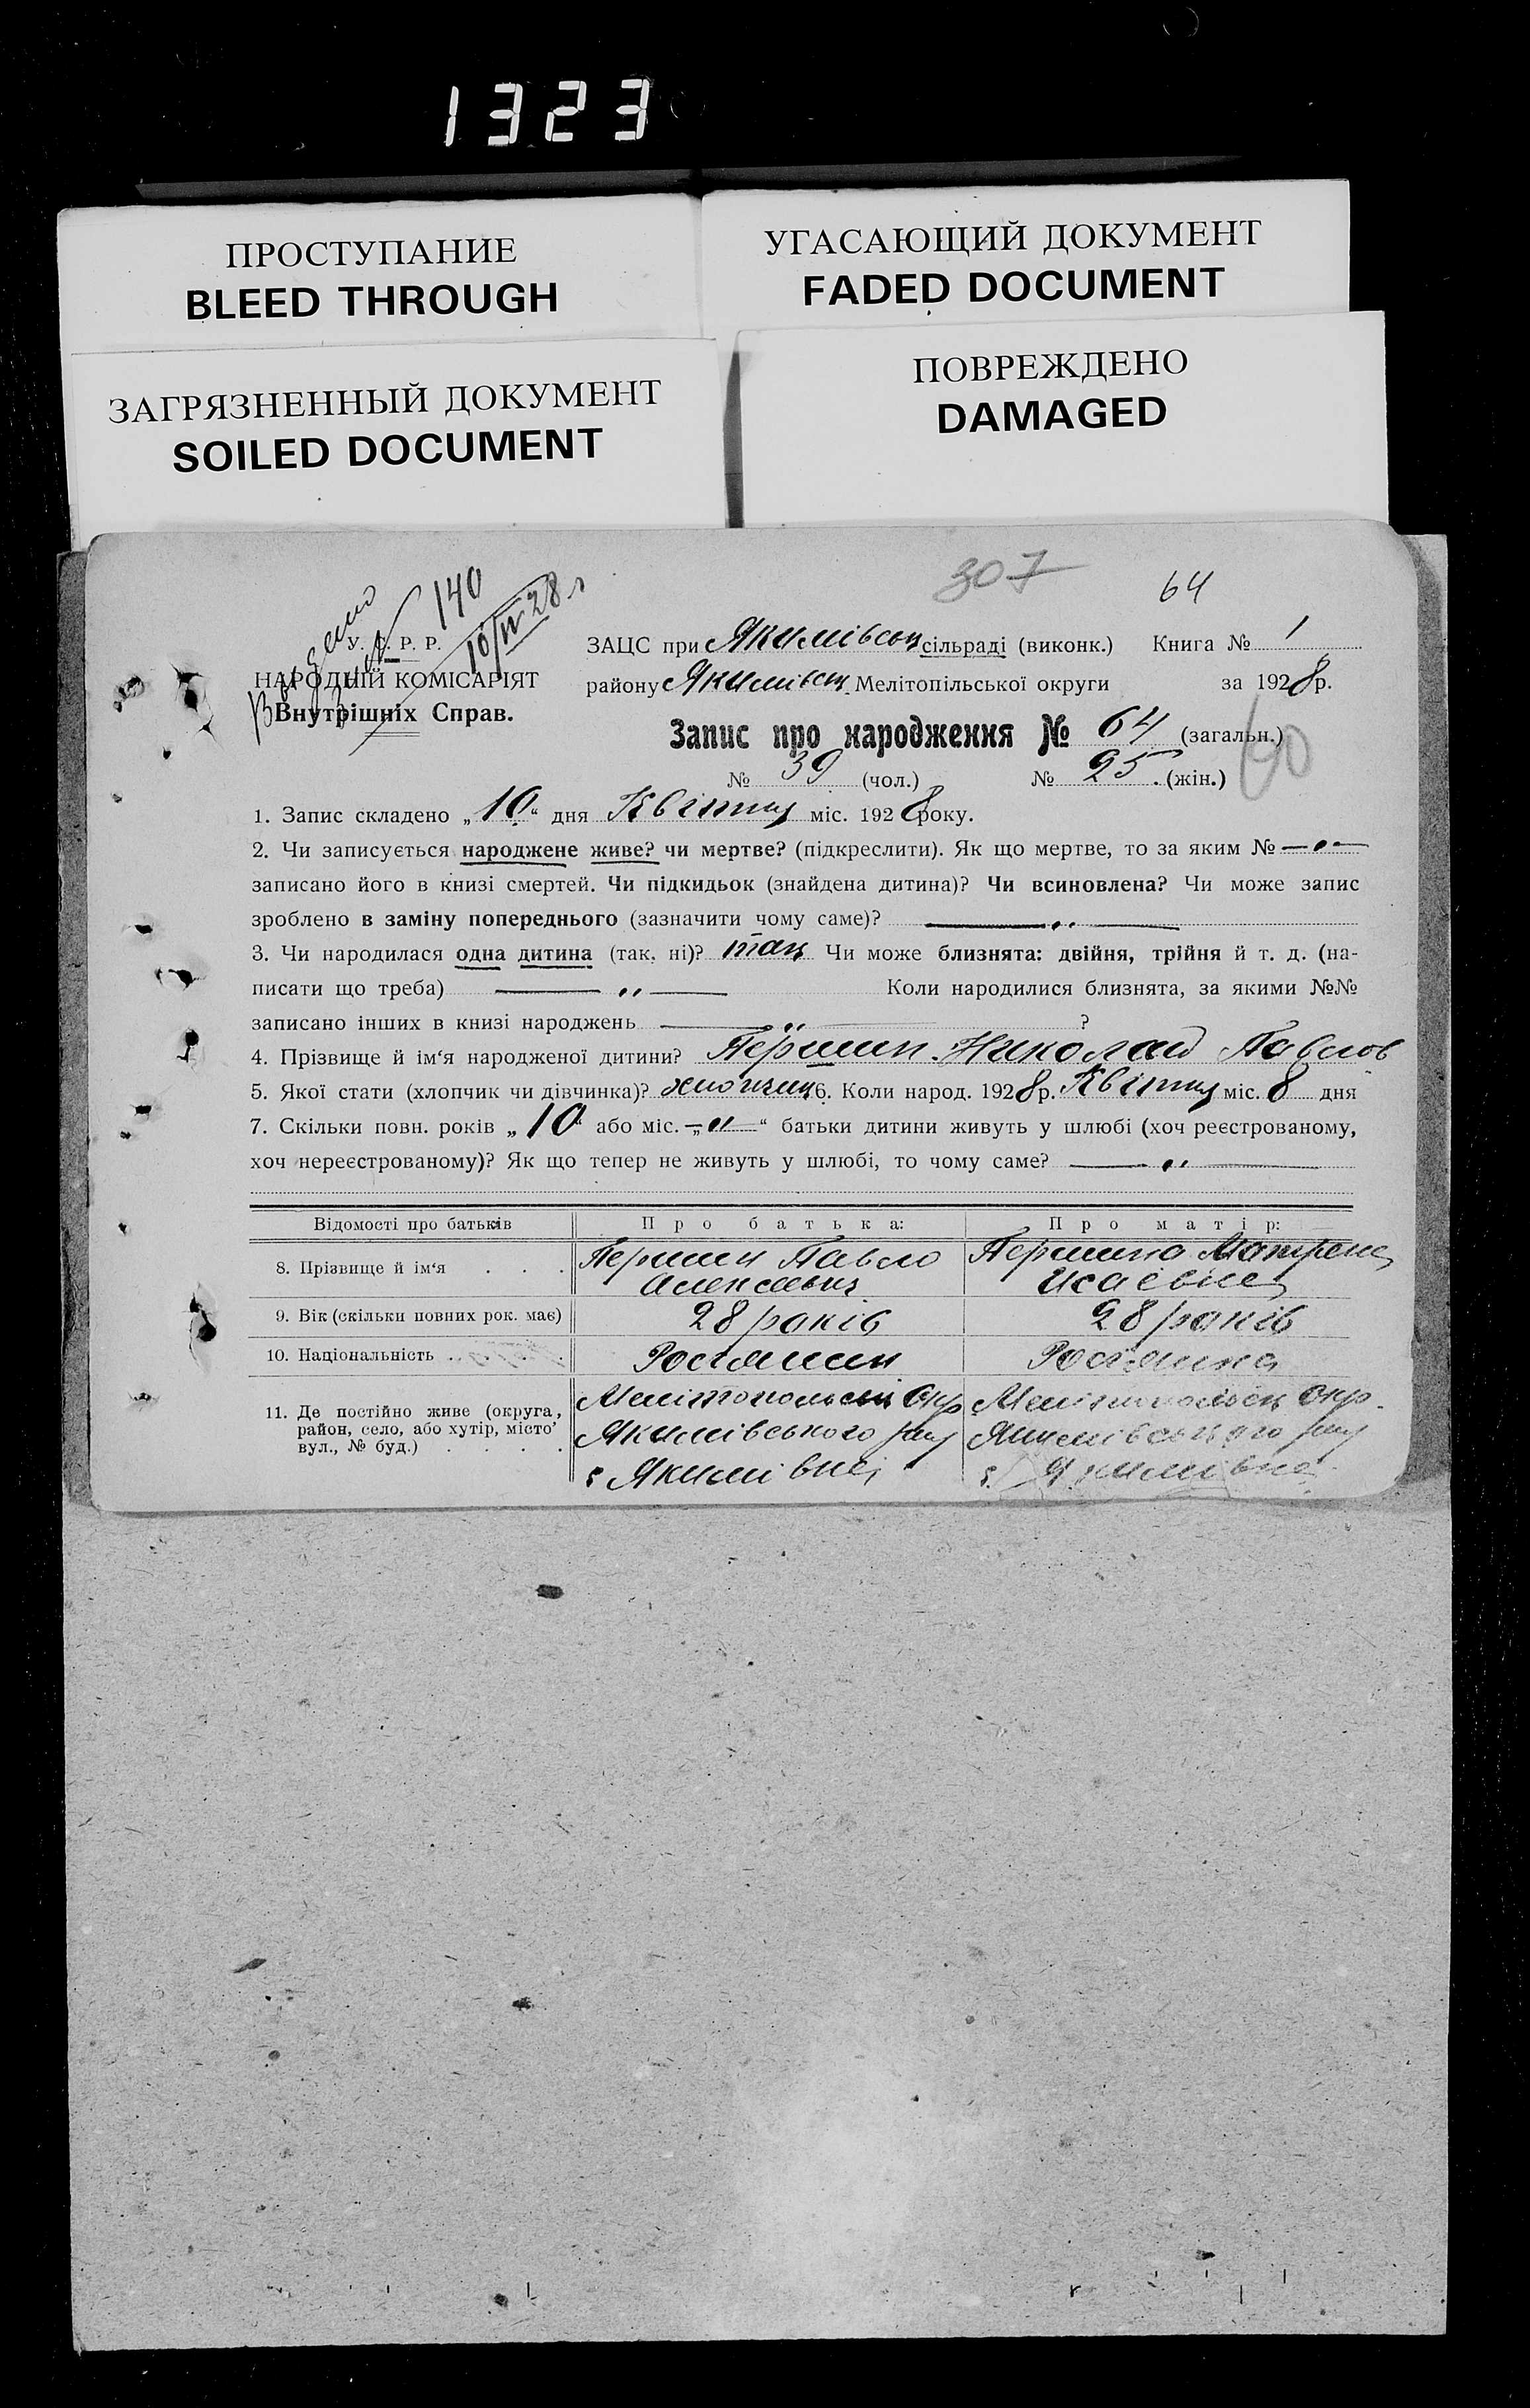 1323
ПРОСТУПАНИЕ
BLEED THROUGH
УГАСАЮЩИЙ ДОКУМЕНТ
FADED DOCUMENT
ЗАГРЯЗНЕННЫЙ ДОКУМЕНТ
SOILED DOCUMENT
ПОВРЕЖДЕНО
DAMAGED
307
64
140
10/IV 28 г
У. С. Р. Р.
НАРОДНІЙ КОМІСАРІЯТ
Внутрішніх Справ.
ЗАЦС при Якимівськ сільраді (виконк.) Книга № 1
району Якимівськ. Мелітопільської округи за 1928 р.
Запис про народження № 64 (загальн.)
№ 39 (чол.) № 25 (жін.)
60
1. Запис складено „10“ дня Квітня міс. 1928 року.
2. Чи записується народжене живе? чи мертве? (підкреслити). Як що мертве, то за яким № —"—
записано його в книзі смертей. Чи підкидьок (знайдена дитина)? Чи всиновлена? Чи може запис
зроблено в заміну попереднього (зазначити чому саме)? — " —
3. Чи народилася одна дитина (так, ні)? так Чи може близнята: двійня, трійня й т. д. (на-
писати що треба) — " — Коли народилися близнята, за якими №№
записано інших в книзі народжень — " — ?
4. Прізвище й ім‘я народженої дитини? Першин Николай Павлов
5. Якої стати (хлопчик чи дівчинка)? хлопчик 6. Коли народ. 1928 р. Квітня міс. 8 дня
7. Скільки повн. років „10“ або міс. „—"—“ батьки дитини живуть у шлюбі (хоч реєстрованому,
хоч нереєстрованому)? Як що тепер не живуть у шлюбі, то чому саме? — " —
Відомості про батьків Про батька: Про матір:
8. Прізвище й ім‘я . . . Першин Павло Першина Матрена
Алексеевич Исаевна
9. Вік (скільки повних рок. має) 28 років 28 років
10. Національність . . . . . Росіянин Росіянка
11. Де постійно живе (округа, район, село, або хутір, місто’ вул., № буд.) . . . .
Мелітопольськ Окр Мелітопольськ Окр.
Якимівського рну Якимівського рну
с Якимівка с. Якимівка